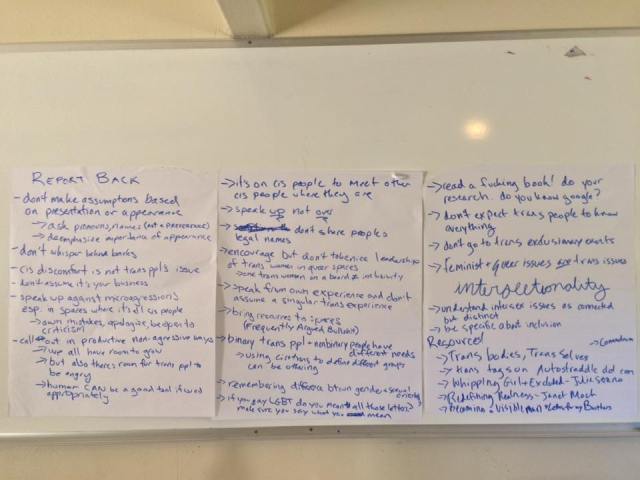 REPORT BACK
- don't make assumptions based
on presentation or appearance
→ ask pronouns, names (not a preference)
→ deemphasize importance of appearance
- don't whisper behind hands
- cis discomfort is not trans ppl's issue
- don't assume it's your business
- speak up against microaggressions
esp. in spaces where it's all cis people
→ own mistakes, apologize, be open to
criticism
- call out in productive non-aggressive ways
→ we all have room to grow
→ but also there's room for trans ppl to
be angry
→ humor CAN be a good tool if used
appropriately
→ it's on cis people to meet other
cis people where they are
→ speak up not over
→ don't share people's
legal names
→ encourage but don't tokenize leadership
of trans women in queer spaces
→ some trans women on a board ≠ inclusivity
→ speak from own experience and don't
assume a singular trans experience
→ bring resources to spaces
(Frequently Argued Bullshit)
→ binary trans ppl + nonbinary people have
different needs
→ using to define different groups
can be offering
→ remembering difference btwn gender + sexual
→ if you say LGBT do you mean all those letters?
make sure you say what you mean
→ read a fucking book! do your
research. do you know google?
→ don't expect trans people to know
everything
→ don't go to trans exclusionary events
→ feminist + queer issues are trans issues
intersectionality
→ understand intersex issues as connected
but distinct
→ be specific about inclusion
Resources!
→ Trans bodies, Trans selves
→ trans tags on Autostraddle dot com
→ Whipping Girl + Excluded - Julia Serano
→ Redefining Realness - Janet Mock
→ Becoming a Visible Man